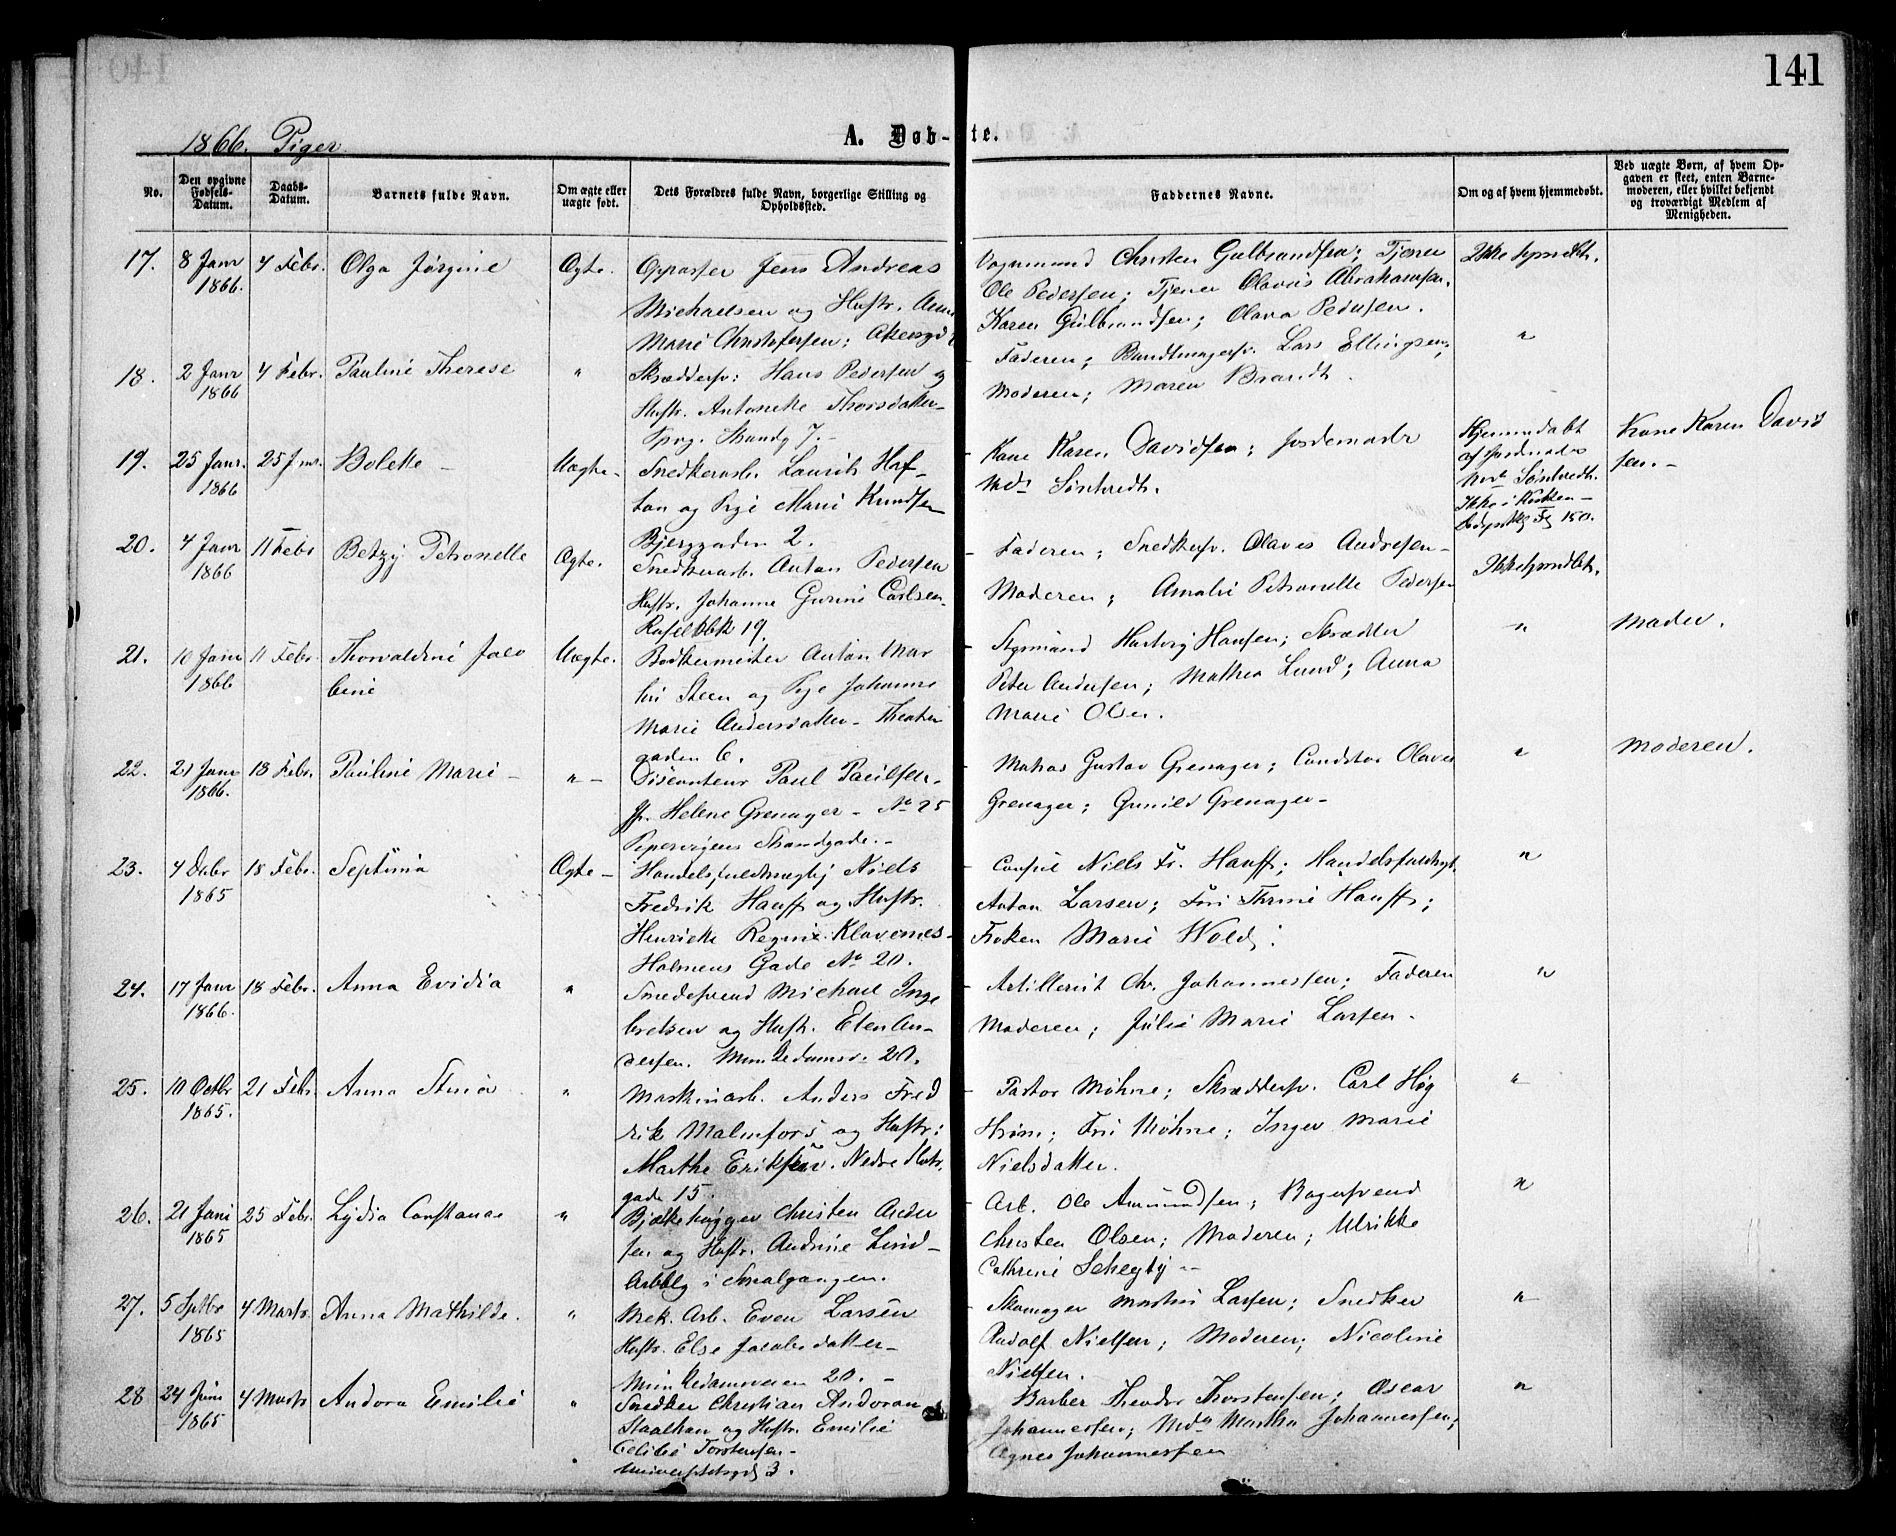 141
1866. Piger
A. Døb-te.
No.
Den opgivne Fødsels-Datum.
Daabs-Datum.
Barnets fulde Navn.
Om ægte eller uægte født.
Dets Forældres fulde Navn, borgerlige Stilling og Opholdssted.
Faddernes Navne.
Om og af hvem hjemmedøbt.
Ved uægte Børn, af hvem Opgaven er skeet, enten Barnemoderen, eller hvilket bekjendt og troværdigt Medlem af Menigheden.
17. 8 Janr 1866. 4 Febr. Olga Jørgine Ægte.
Oppasser Jens Andreas
Michaelsen og Hustr. Anne
Marie Christofersen; Akersgd
Vognmand Christen Gulbrandsen; Tjener
Ole Pedersen; Tjener Olavus Abrahamsen.
Karen Gulbrandsen; Olava Pedersen.
Ikke hjmdbt.
18. 2 Janr 1866 4 Febr. Pauline Therese "
Skræddersv: Hans Pedersen og
Hustr. Antonette Thorsdatter
Strandg 7. -
- Faderen; Bundtmagersv. Lars Ellingsen;
Moderen; Maren Brandt.
"
19. 25 Janr. 1866 25 Janr. Bolette - Uægte -
Snedkerarb. Laurits Haf-
tan og Pige Marie Knudsen
Bjerggaden 2.
- Kone Karen Davidsen; Jordemoder
Md. Sönlvedt.
Hjemmedøbt
af Jordmoder
Ikke i Kirken -
Kone Karen David
sen. -
20. 4 Janr 1866 11 Febr Betzy Petronelle Ægte.
Snedkerarb. Anton Pedersen
Hustr. Johanne Gurine Carlsen.
19.
- Faderen; Snedkersv. Olaves Andresen -
Moderen; Amalie Petronelle Pedersen
Ikke hjemdbt.
21. 10 Janr 1866 11 Febr. Thorvaldine Jaco
bine Uægte.
Bødkermester Anton Mar
tin Steen og Pige Johanne
Marie Andersdatter - Theater
gaden 6.
- Styrmand Hartvig Hansen; Skrædder
Peter Andersen; Mathea Lund; Anna
Marie Olsen.
"
Moder.
22. 21 Janr 1866. 18 Febr. Pauline Marie - " -
Paul Paulsen.
Helene Grenager - No 25
Pipervigens Strandgade. -
- Matros Gustav Grenager; Olaves
Grenager; Gunild Grenager -
"
Moderen.
23. 4 Decbr 1865 18 Febr. Septimia Ægte -
Handelsfuldmægtig Niels
Fredrik Hauff og Hustr.
Henriette Regine Klavenes -
Holmens Gade No 20.
- Consul Niels Fr. Hauff; Handelsfuldmgt.
Anton Larsen; Frü Thrine Hauff;
Frøken Marie Wold;
"
24. 17 Janr 1866. 18 Febr. Anna Evidia "
Smedesvend Michael Inge
bretsen og Hustr. Elen An-
dersen. Munkedamsv. 20.
- Artillerist Chr. Johannessen; Faderen
Moderen; Julie Marie Larsen -
"
25. 10 Octbr 1865. 21 Febr. Anna Stina "
Maskinarb. Anders Fred
rik Malmfors og Hustr:
Marthe Eriksen. Nedre Slots
gade 15.
- Pastor Møhne; Skræddersv. Carl Høg
Strøm; Fru Møhne; Inger Marie
Nielsdatter.
"
26. 21 Juni 1865 25 Febr. Lydia Constance "
Bjelkehugger Christen Ander
sen og Hustr. Andrine Lind -
i Smalgangen.
- Arb. Ole Amundsen; Bagersvend
Christen Olsen; Moderen; Ulrikke
Cathrine Schegby -
"
27. 5 Septbr 1865 4 Marts. Anna Mathilde. "
Mek. Arb. Even Larsen
Hustr. Else Jacobsdatter -
Munkedamsveien 20. -
- Skomager Martin Larsen; Snedker
Rudolf Nielsen; Moderen; Nicoline
Nielsen.
"
28 24 Juni 1865 4 Marts Andora Emilie "
Snedker Christian Andoran
Staalhan og Hustr. Emilie
Torstensen -
Universitetsgd 3.
- Barber Theodor Thorstensen; Oscar
Johannessen; Md. Martha Johannessen;
Agnes Johannessen
"